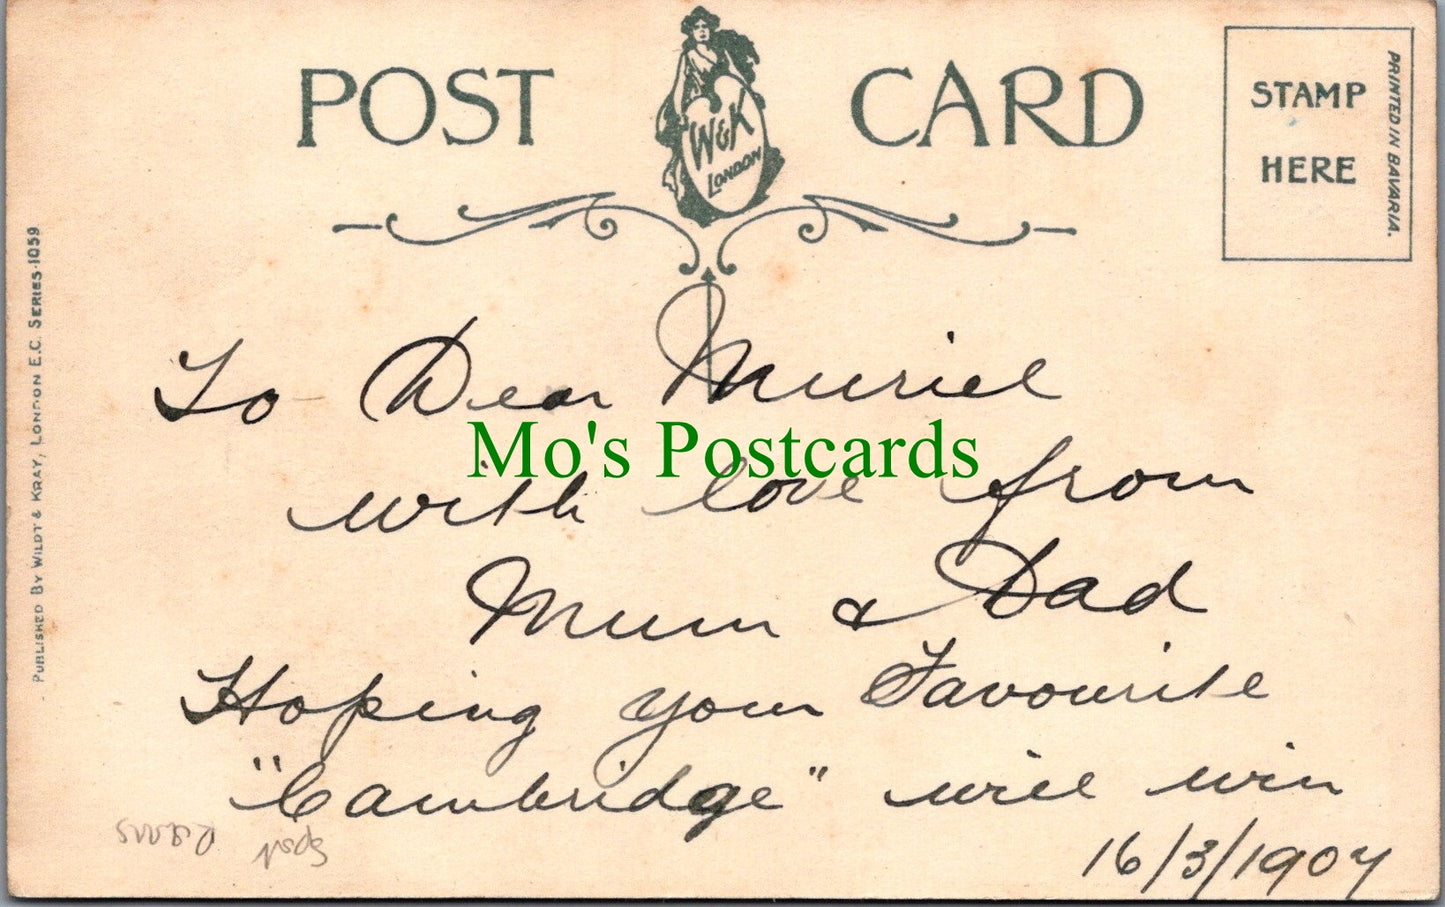 POST CARD
W&K
LONDON
STAMP
HERE
PRINTED IN BAVARIA.
PUBLISHED BY WILDT & KRAY, LONDON E.C. SERIES·1059
To Dear Muriel
Mo's Postcards
with love from
Mum & Dad
Hoping your Favourite
"Cambridge" will win
16/3/1907